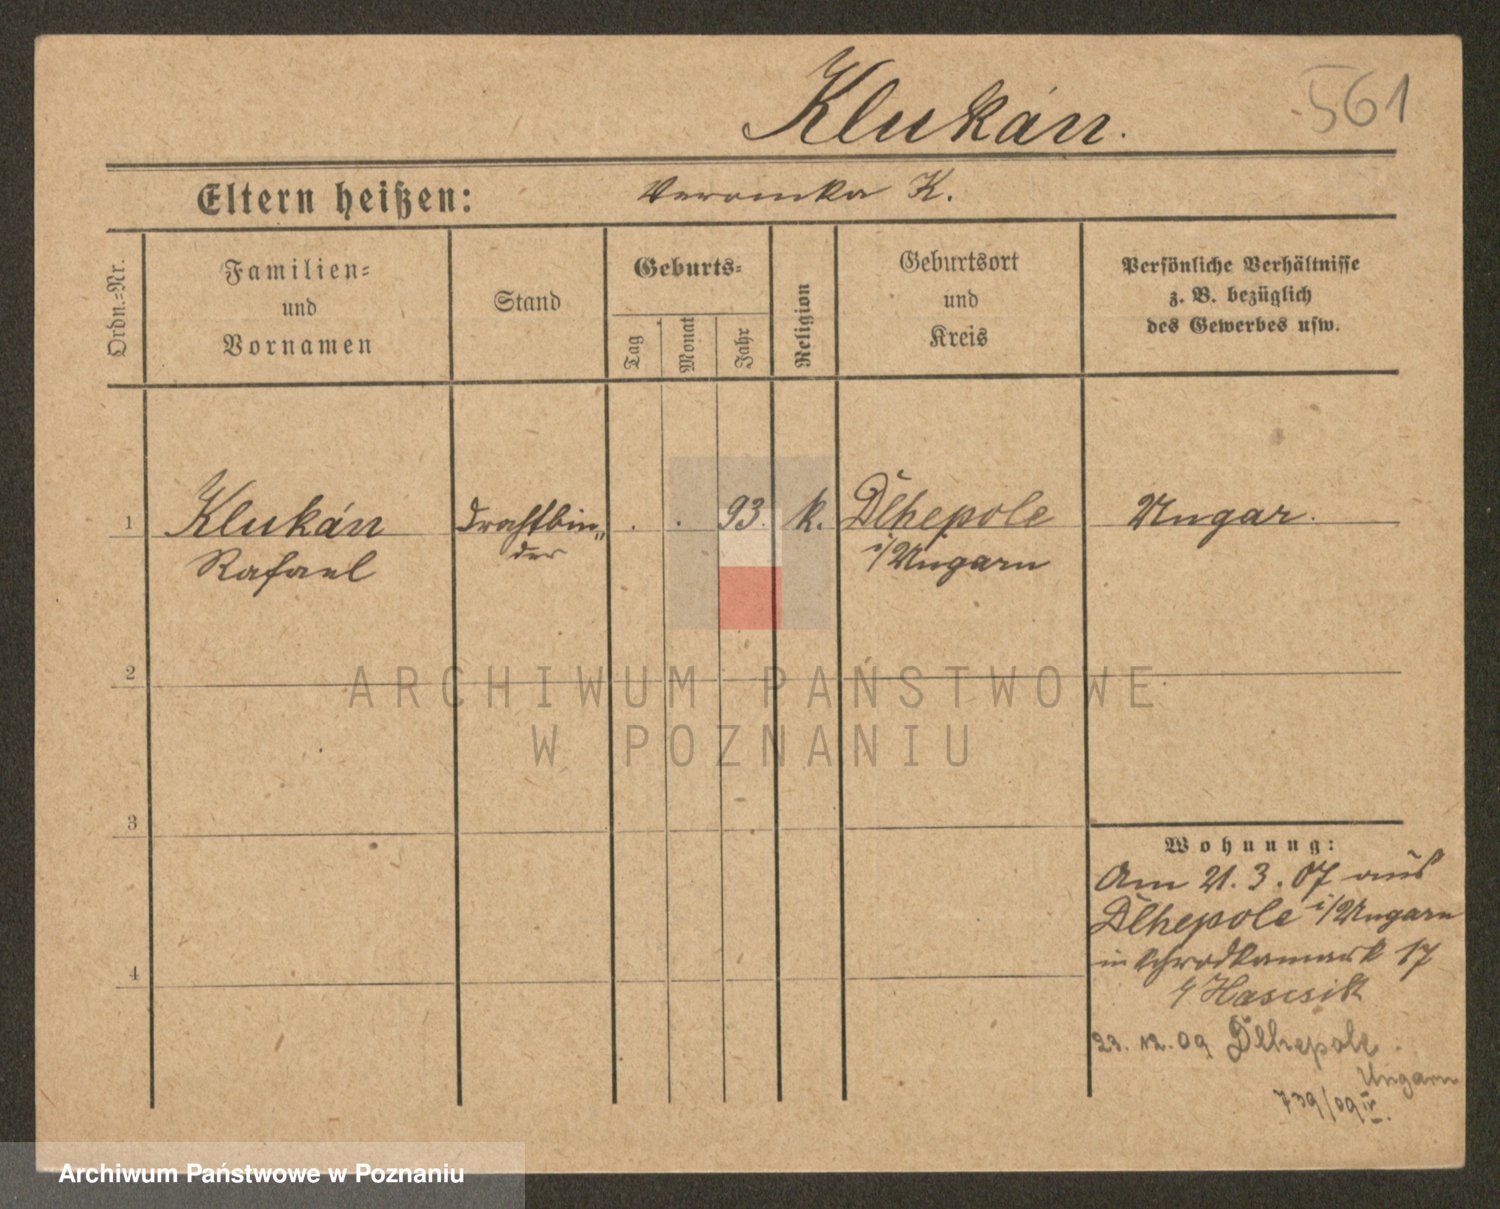 Klukán.
561
Eltern heißen: Veronika K.
Ordn.=Nr.
Familien=
und
Vornamen
Stand
Geburts=
Tag
Monat
Jahr
Religion
Geburtsort
und
Kreis
Persönliche Verhältnisse
z. B. bezüglich
des Gewerbes usw.
1 Klukán Drahtbin„ . . 93. k. Dlhepole Ungar.
Rafael der i/Ungarn
2
ARCHIWUM PAŃSTWOWE
W POZNANIU
3
Wohnung:
Am 21. 3. 07 aus
Dlhepole i/Ungarn
in Schrodkamark 17
b/ Hascsik
4
23. 12. 09 Dlhepole.
Ungarn
739/09 IV.
Archiwum Państwowe w Poznaniu